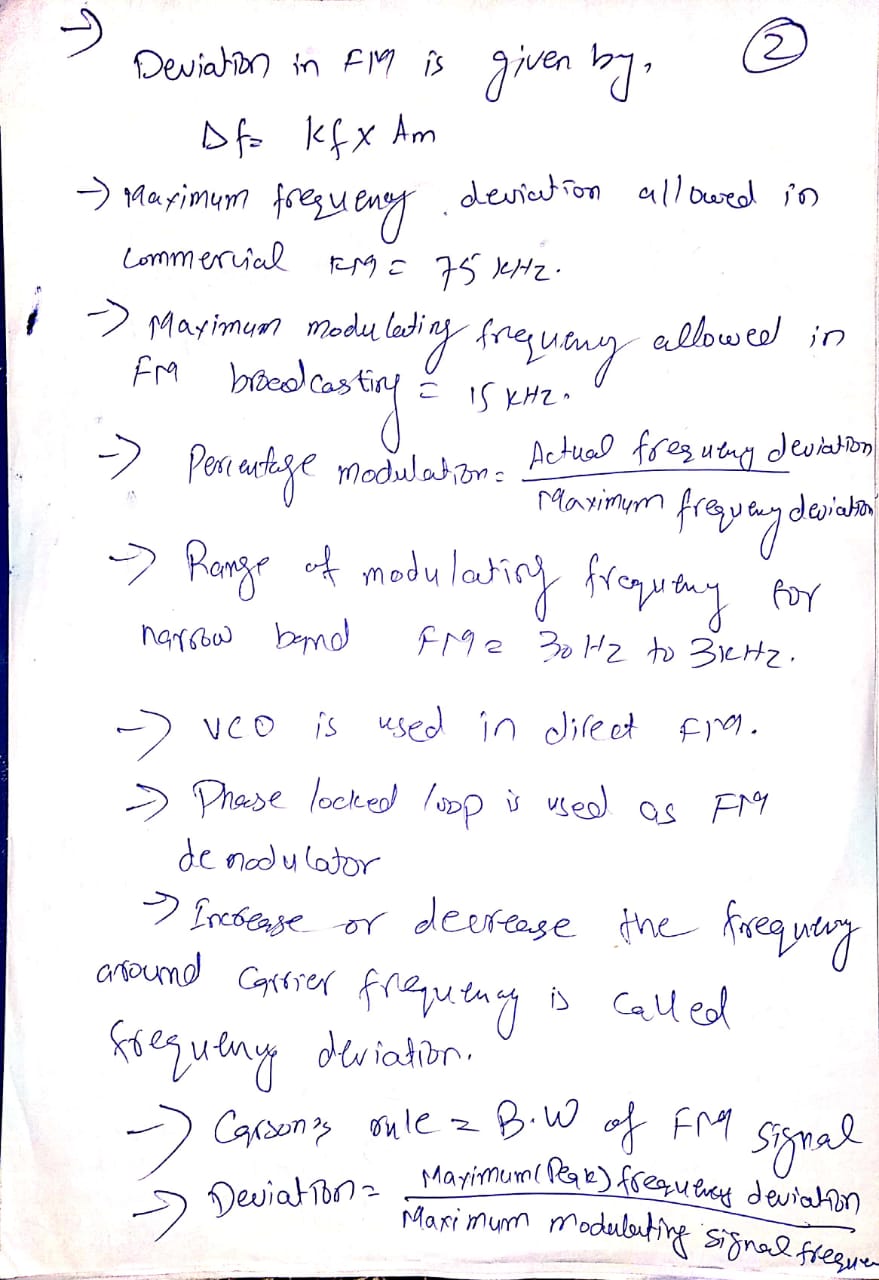 →
Deviation in FM is given by, ②
Δf= kf x Am
→ Maximum frequency deviation allowed in
commercial FM = 75 kHz.
→ Maximum modulating frequency allowed in
FM broadcasting = 15 KHz.
→ Percentage modulation = Actual frequency deviation
Maximum frequency deviation
→ Range of modulating frequency for
narrow band FM = 30 Hz to 3kHz.
→ VCO is used in direct FM.
→ Phase locked loop is used as FM
demodulator
→ Increase or decrease the frequency
around carrier frequency is called
frequency deviation.
→ Carson's rule = B.W of FM signal
→ Deviation = Maximum (Peak) frequency deviation
Maximum modulating signal freque